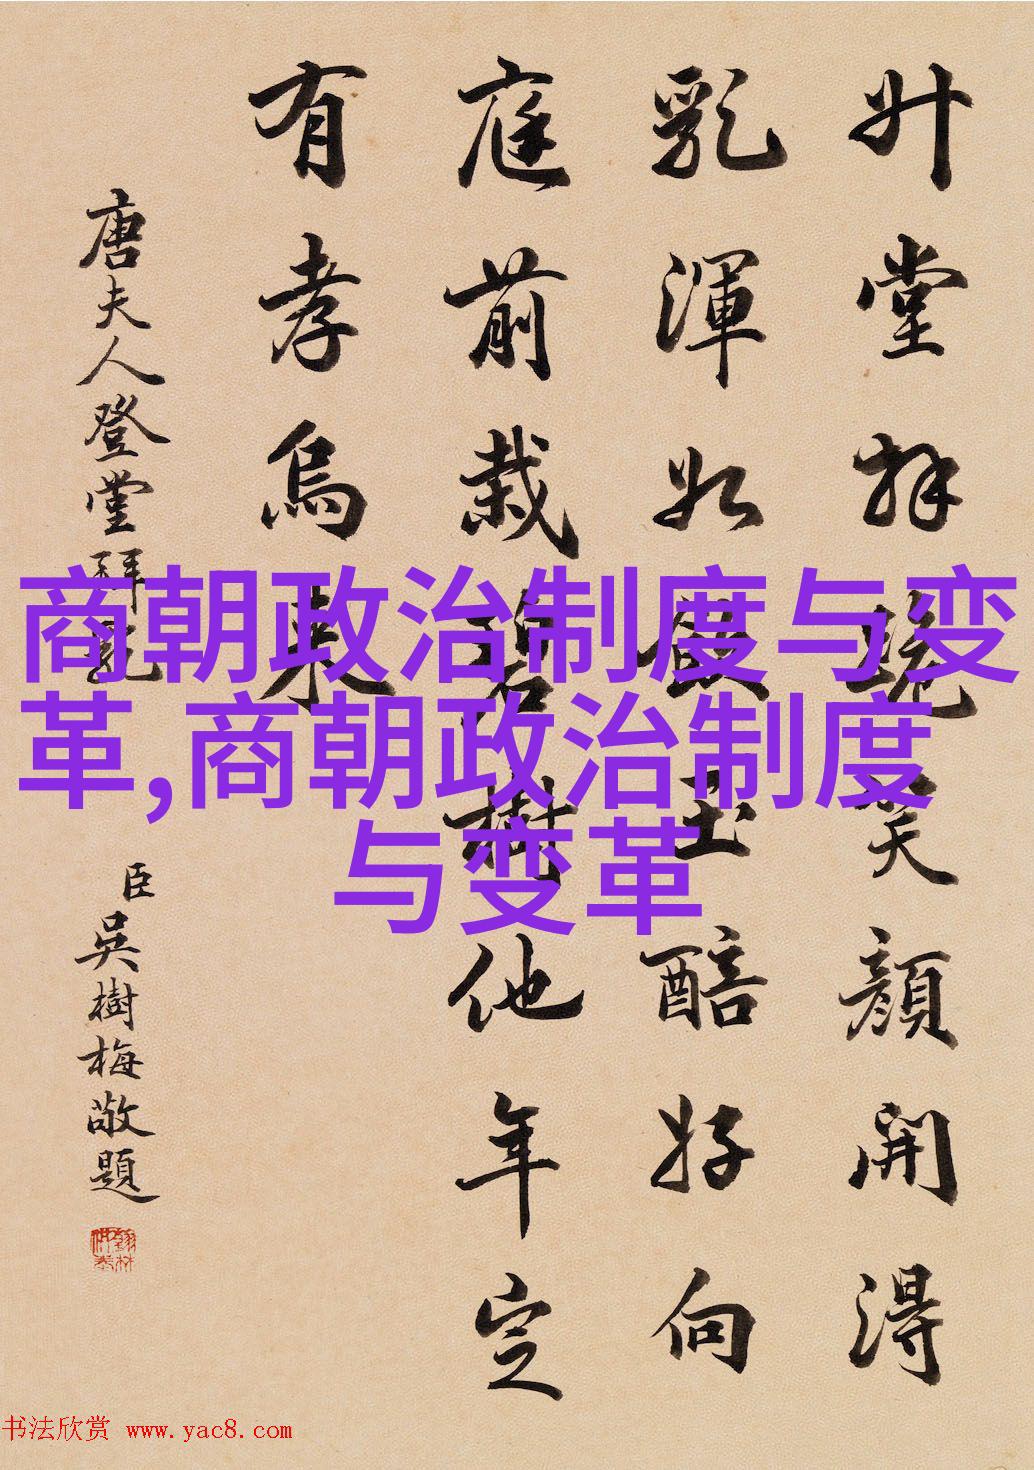 升堂拜跪笑顏開得
乳渾如飲玉醅好向
庭前栽碧樹他年定
有孝烏來
唐夫人登堂拜乳
臣吳樹梅敬題
商朝政治制度与变
革,商朝政治制度
与变革
书法欣赏 www.yac8.com